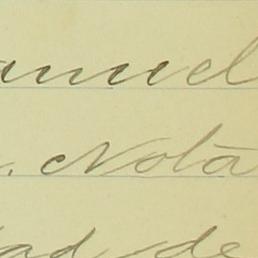 anuel
. Nota
ad de